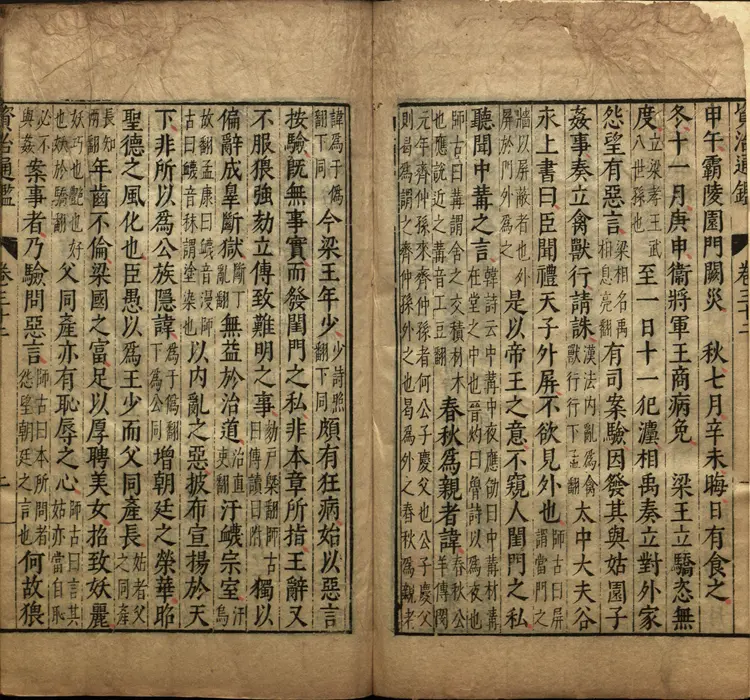 資治通鑑 卷三十二
甲午霸陵園門闕災 秋七月辛未晦日有食之
冬十一月庚申衛將軍王商病免 梁王立驕恣無
度立梁孝王武八世孫也至一日十一犯灋相禹奏立對外家
怨望有惡言梁相名禹相息亮翻有司案驗因發其與姑園子
姦事奏立禽獸行請誅漢法內亂爲禽獸行行下孟翻太中大夫谷
永上書曰臣聞禮天子外屏不欲見外也師古曰屏謂當門之
牆以屏蔽者也外屏於門外爲之是以帝王之意不窺人閨門之私
聽聞中冓之言韓詩云中冓中夜應劭曰中冓材冓在堂之中也晉灼曰魯詩以爲夜也
師古曰冓謂舍之交積材木也應說近之冓音工豆翻春秋爲親者諱春秋公羊傳閔
元年齊仲孫來齊仲孫者何公子慶父也公子慶父則曷爲謂之齊仲孫外之也曷爲外之春秋爲親者
諱爲于僞翻下同今梁王年少少詩照翻下同頗有狂病始以惡言
按驗既無事實而發閨門之私非本章所指王辭又
不服猥強劾立傅致難明之事劾戶槩翻師古曰傅讀曰附獨以
偏辭成辠斷獄斷丁亂翻無益於治道治直吏翻汙衊宗室汙烏
故翻孟康曰衊音漫師古曰衊音秣謂塗染也以內亂之惡披布宣揚於天
下非所以爲公族隱諱爲于僞翻下爲公同增朝廷之榮華昭
聖德之風化也臣愚以爲王少而父同產長姑者父之同產
長知兩翻年齒不倫梁國之富足以厚聘美女招致妖麗
妖巧也艷也好也妖於驕翻父同產亦有恥辱之心師古曰言其姑亦當自恥
必不與姦案事者乃驗問惡言師古曰本所問者怨望朝廷之言也何故猥
資治通鑑 卷三十二 一